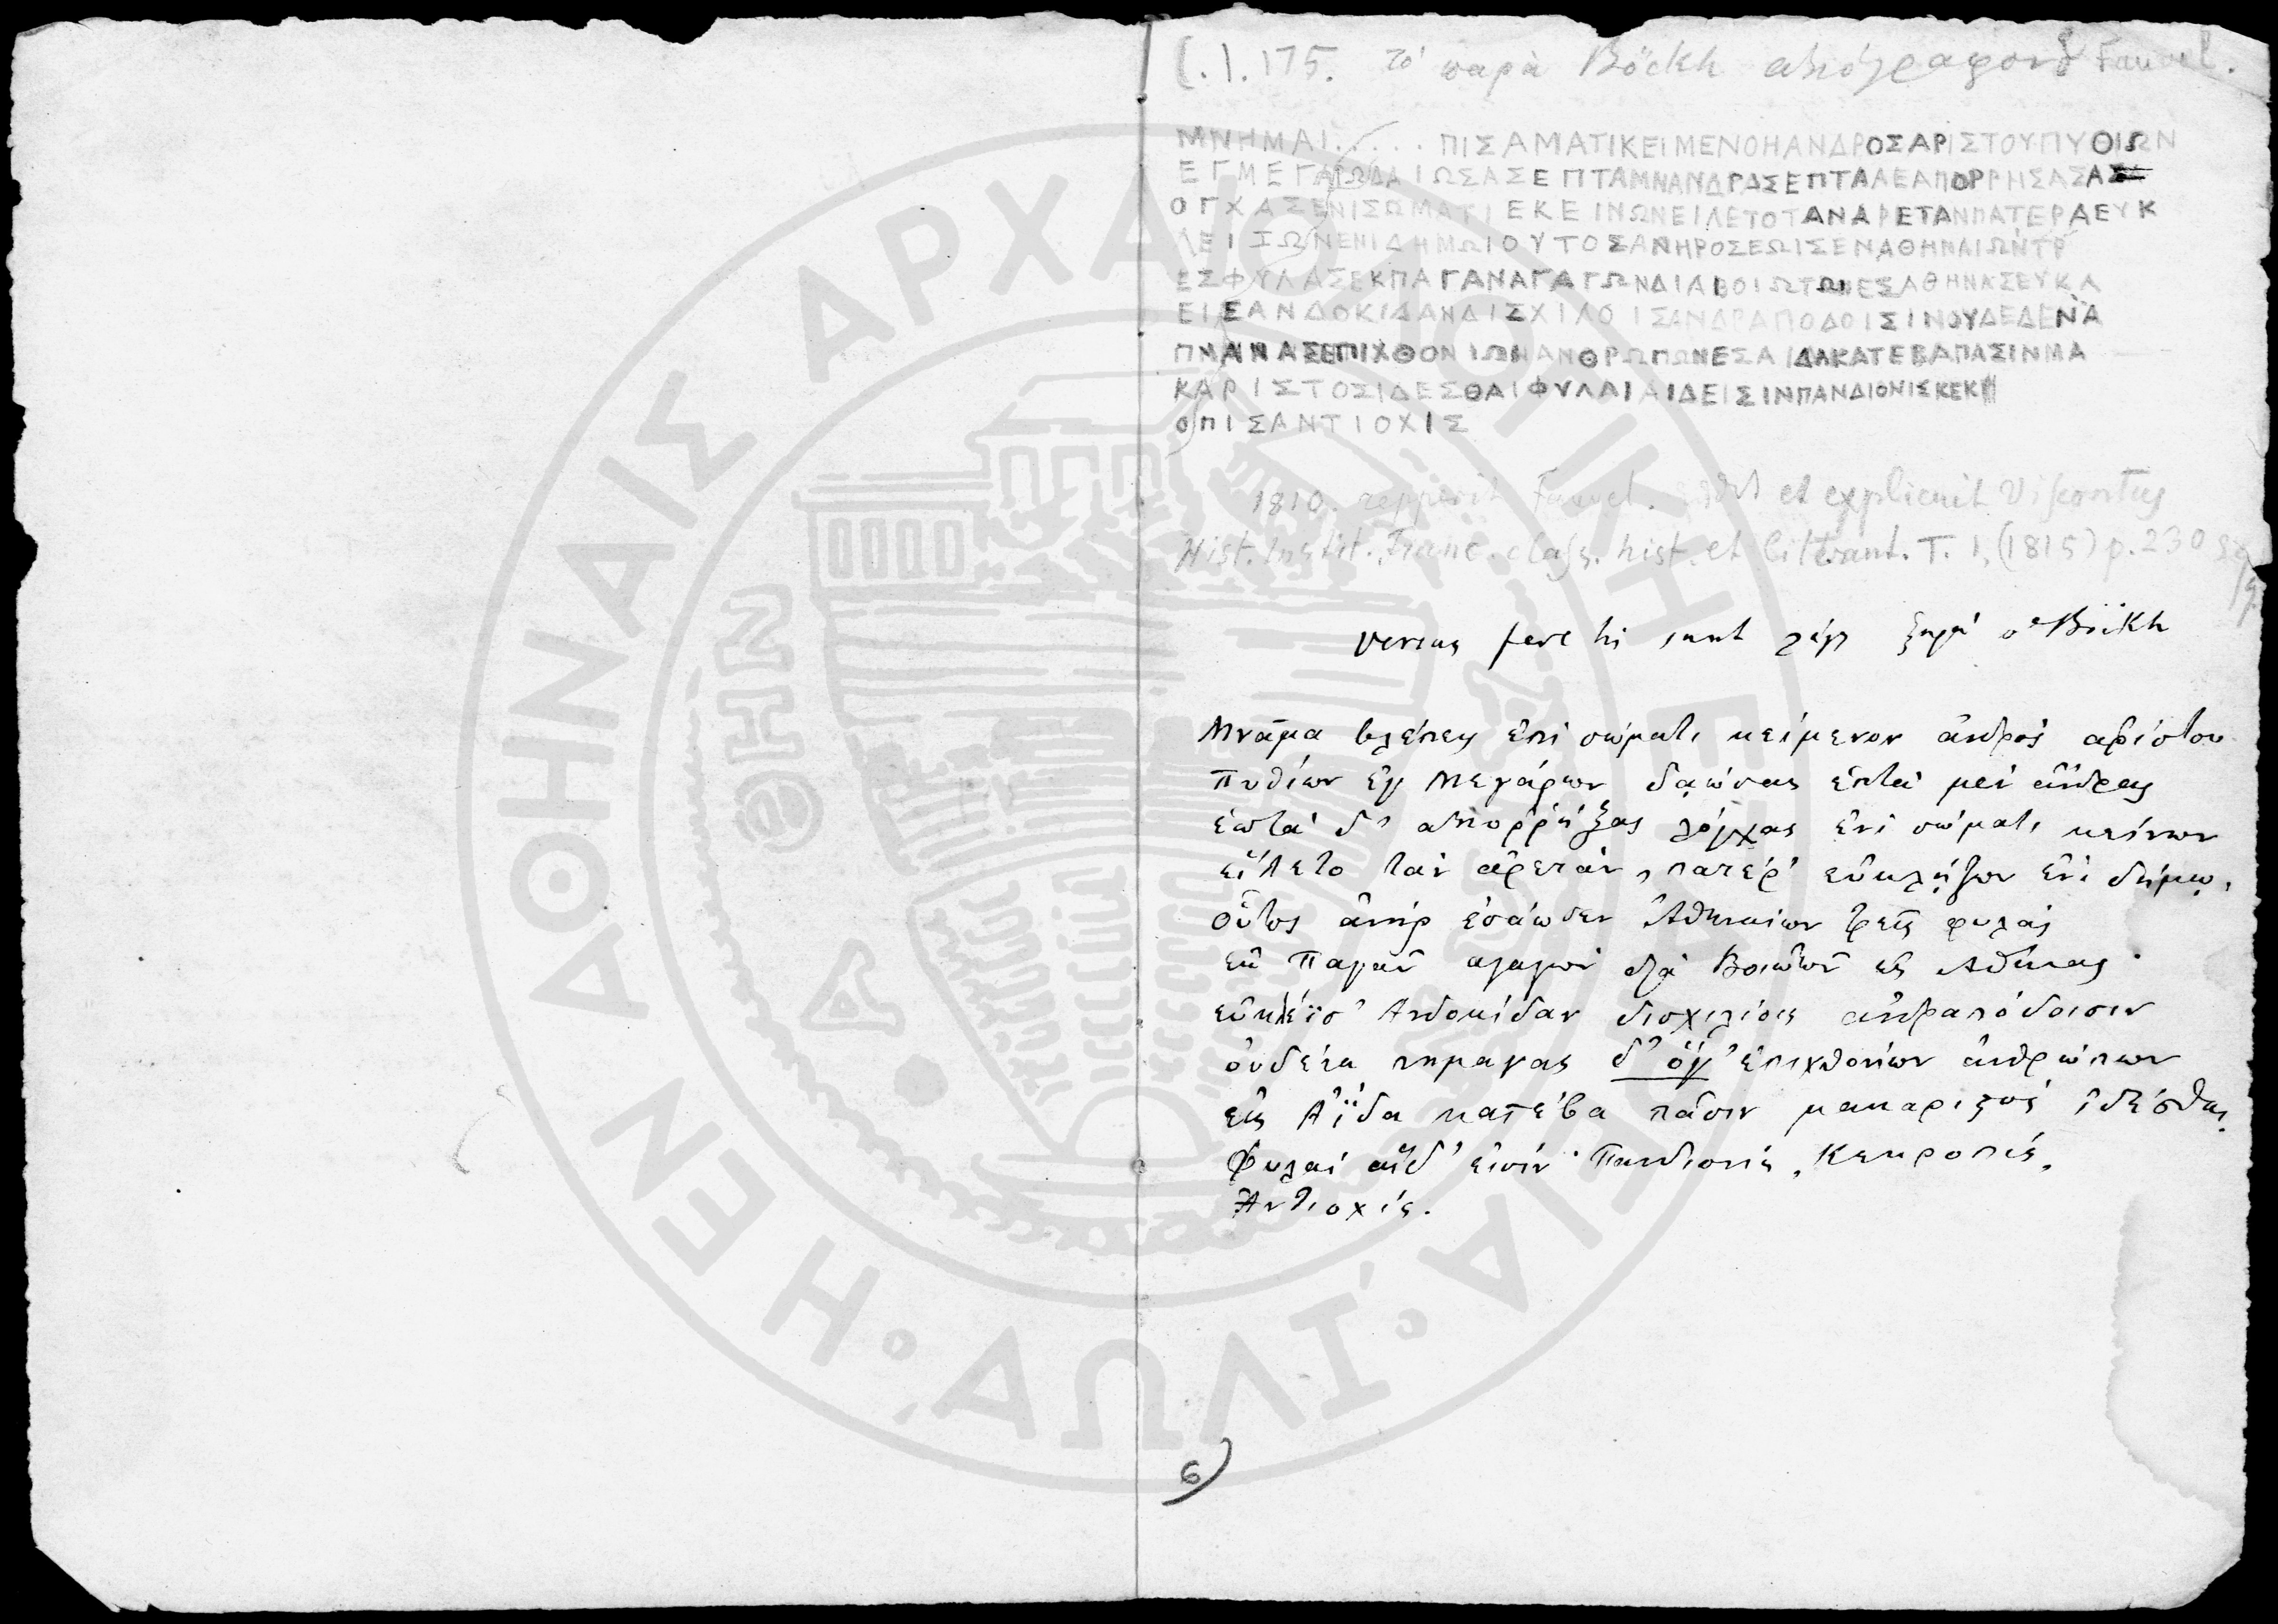 175. τὸ παρὰ Böckh ἀπόγραφον Fauvel.
ΜΝΗΜΑΙ.....ΠΙΣΑΜΑΤΙΚΕΙΜΕΝΟΗΑΝΔΡΟΣΑΡΙΣΤΟΥΠΥΘΙΩΝ
ΕΓΜΕΓΑΡΩΔΑΙΩΣΑΣΕΠΤΑΜΝΑΝΔΡΑΣΕΠΤΑΑΕΑΠΟΡΡΗΣΑΣΑΣ
ΟΓΧΑΣΕΝΙΣΩΜΑΤΙΕΚΕΙΝΩΝΕΙΛΕΤΟΤΑΝΑΡΕΤΑΝΠΑΤΕΡΑΕΥΚ
ΛΕΙΙΩΝΕΝΙΔΗΜΩΙΟΥΤΟΣΑΝΗΡΟΣΕΩΙΣΕΝΑΘΗΝΑΙΩΝΤΡ
ΕΣΦΥΛΑΣΕΚΠΑΓΑΝΑΓΑΓΩΝΔΙΑΒΟΙΩΤΩΝΕΣΑΘΗΝΑΣΕΥΚΛ
ΕΙΣΑΝΔΟΚΙΔΑΝΔΙΣΧΙΛΟΙΣΑΝΔΡΑΠΟΔΟΙΣΙΝΟΥΔΕΔΕΝΑ
ΠΝΑΝΑΣΕΠΙΧΘΟΝΙΩΝΑΝΘΡΩΠΩΝΕΣΑΙΔΑΚΑΤΕΒΑΠΑΣΙΝΜΑ
ΚΑΡΙΣΤΟΣΙΔΕΣΘΑΙΦΥΛΑΙΑΙΔΕΙΣΙΝΠΑΝΔΙΟΝΙΣΚΕΚΡ
ΟΠΙΣΑΝΤΙΟΧΙΣ
1810. repperit Fauvel. et explicuit Viscontus
Hist. Instit. Franc. class. hist. et litterant. T. 1, (1815) p. 230 sq
versus fere hi sunt ὁ Böckh
Μνᾶμα βλέπεις ἐπὶ σώματι κείμενον ἀνδρὸς ἀρίστου
Πυθίων ἐγ Μεγάρων δαιώσας ἑπτὰ μὲν ἄνδρας
ἑπτὰ δ' ἀπορρήξας λόγχας ἐνὶ σώματι κείνων
εἵλετο τὰν ἀρετὰν, πατέρ' εὐκληΐζων ἐνὶ δήμῳ.
οὗτος ἀνήρ ἐσάωσεν Ἀθηναίων τρεῖς φυλάς
ἐκ Παγᾶν ἀγαγὼν διὰ Βοιωτῶν ἐς Ἀθήνας
εὐκλέϊσ' Ἀνδοκίδαν δισχιλίοις ἀνδραπόδοισιν
οὐδένα πημάνας δ' ὅγ' ἐπιχθονίων ἀνθρώπων
εἰς Ἀΐδα κατέβα πᾶσιν μακαριστὸς ἰδέσθαι.
Φυλαί αἵδ' εἰσίν· Πανδιονίς, Κεκροπίς,
Ἀντιοχίς.
6)
ΕΝ ΑΘΗΝΑΙΣ ΑΡΧΑΙΟΛΟΓΙΚΗ ΕΤΑΙΡΕΙΑ
Η
ΑΘΗΝ